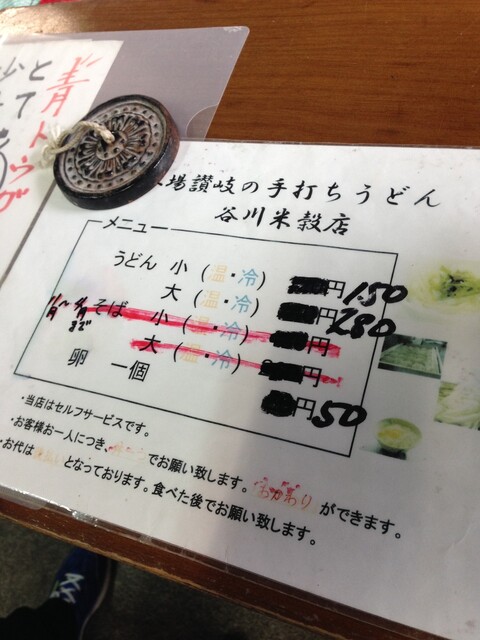 青トウガ
とて
場讃岐の手打ちうどん
谷川米穀店
メニュー
うどん 小 (温・冷) 円 150
大 (温・冷) 円 280
そば 小 (温・冷) 円
大 (温・冷) 円
卵 一個 円 50
・当店はセルフサービスです。
・お客様お一人につき、でお願い致します。おかわりができます。
・お代は後払いとなっております。食べた後でお願い致します。